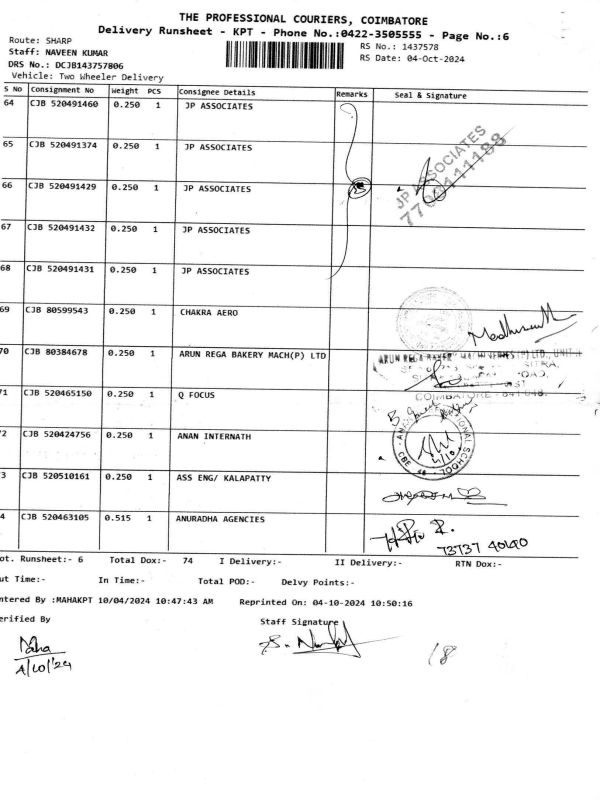 THE PROFESSIONAL COURIERS, COIMBATORE
Delivery Runsheet - KPT - Phone No.:0422-3505555 - Page No.:6
Route: SHARP
RS No.: 1437578
Staff: NAVEEN KUMAR
RS Date: 04-Oct-2024
DRS No.: DCJB143757806
Vehicle: Two Wheeler Delivery
S No Consignment No Weight PCS Consignee Details Remarks Seal & Signature
64 CJB 520491460 0.250 1 JP ASSOCIATES
65 CJB 520491374 0.250 1 JP ASSOCIATES
66 CJB 520491429 0.250 1 JP ASSOCIATES
JP ASSOCIATES
67 CJB 520491432 0.250 1 JP ASSOCIATES
68 CJB 520491431 0.250 1 JP ASSOCIATES
69 CJB 80599543 0.250 1 CHAKRA AERO
70 CJB 80384678 0.250 1 ARUN REGA BAKERY MACH(P) LTD
71 CJB 520465150 0.250 1 Q FOCUS
COIMBATORE
72 CJB 520424756 0.250 1 ANAN INTERNATH
3 CJB 520510161 0.250 1 ASS ENG/ KALAPATTY
4 CJB 520463105 0.515 1 ANURADHA AGENCIES
73737 40140
ot. Runsheet:- 6 Total Dox:- 74 I Delivery:- II Delivery:- RTN Dox:-
ut Time:- In Time:- Total POD:- Delvy Points:-
ntered By :MAHAKPT 10/04/2024 10:47:43 AM Reprinted On: 04-10-2024 10:50:16
erified By Staff Signature
Maha
4/10/24
18